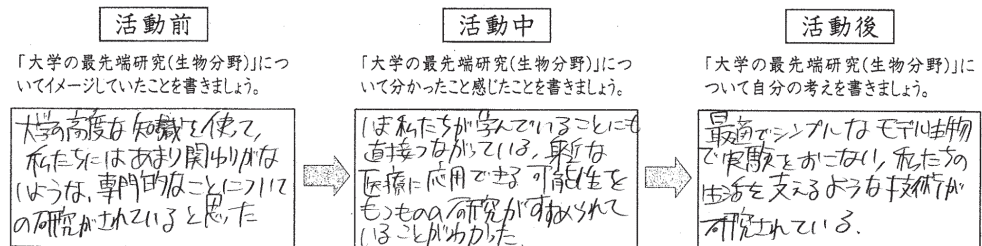 活動前
「大学の最先端研究(生物分野)」につ
いてイメージしていたことを書きましょう。
大学の高度な知識を使って、
私たちにはあまり関わりがな
いような、専門的なことについて
の研究がされていると思った
活動中
「大学の最先端研究(生物分野)」につ
いて分かったこと感じたことを書きましょう。
は私たちが学んでいることにも
直接つながっている、身近な
医療に応用できる可能性を
もつものの研究がすすめられて
いることがわかった
活動後
「大学の最先端研究(生物分野)」に
ついて自分の考えを書きましょう。
最適でシンプルなモデル生物
で実験をおこない、私たちの
生活を支えるような技術が
研究されている。